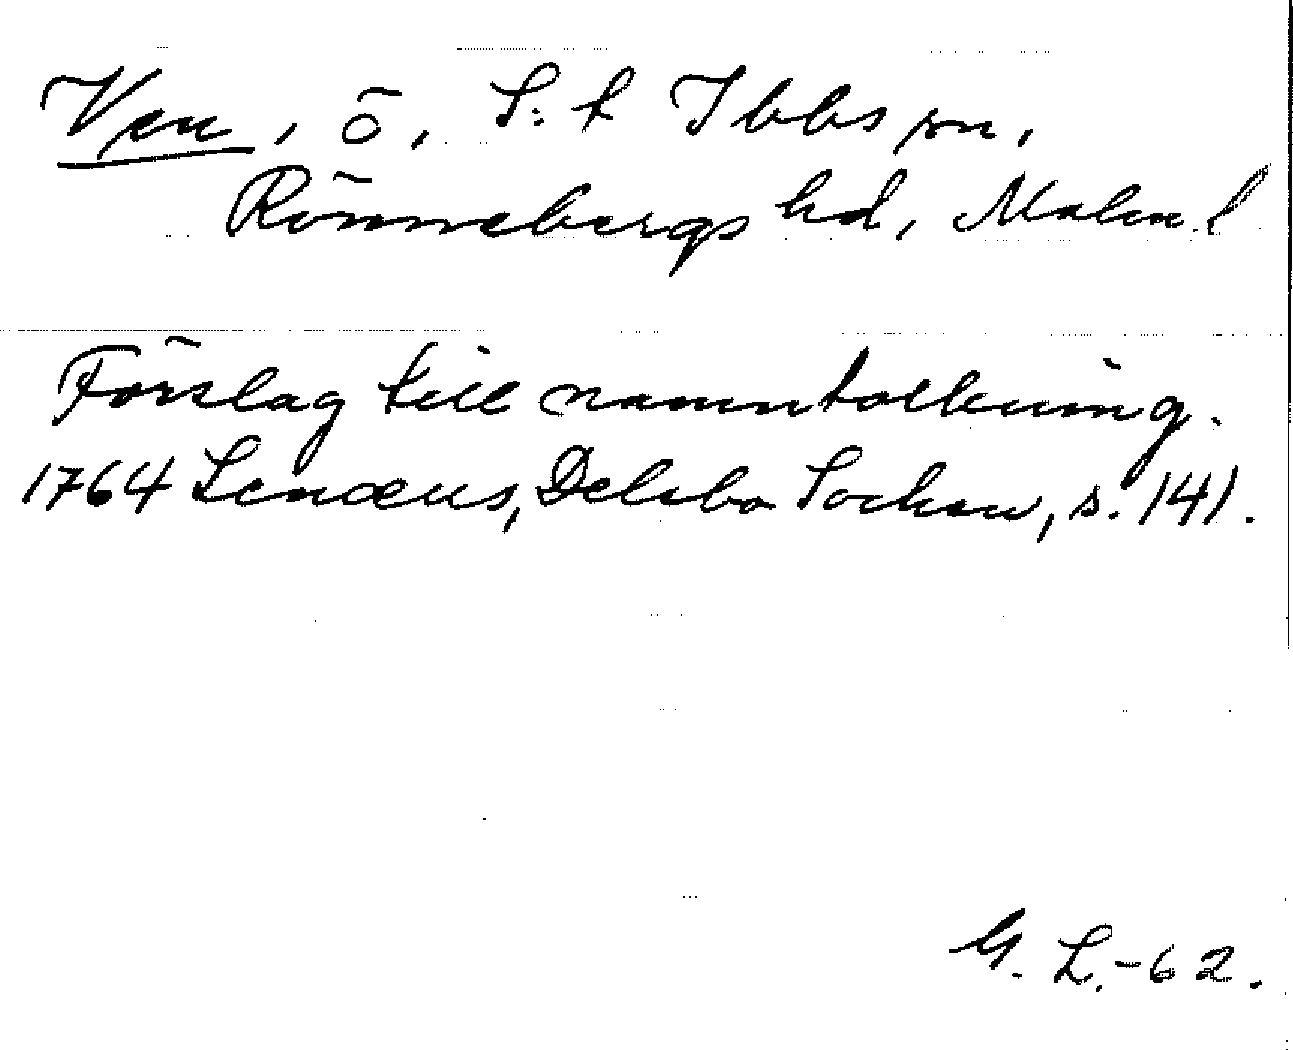 Ven, ö, S:t Ibbs sn,
Rönnebergs hd, Malm. l
Förslag till namntolkning.
1764 Lenæus, Delsbo Socken, s. 141.
G. L.-62.